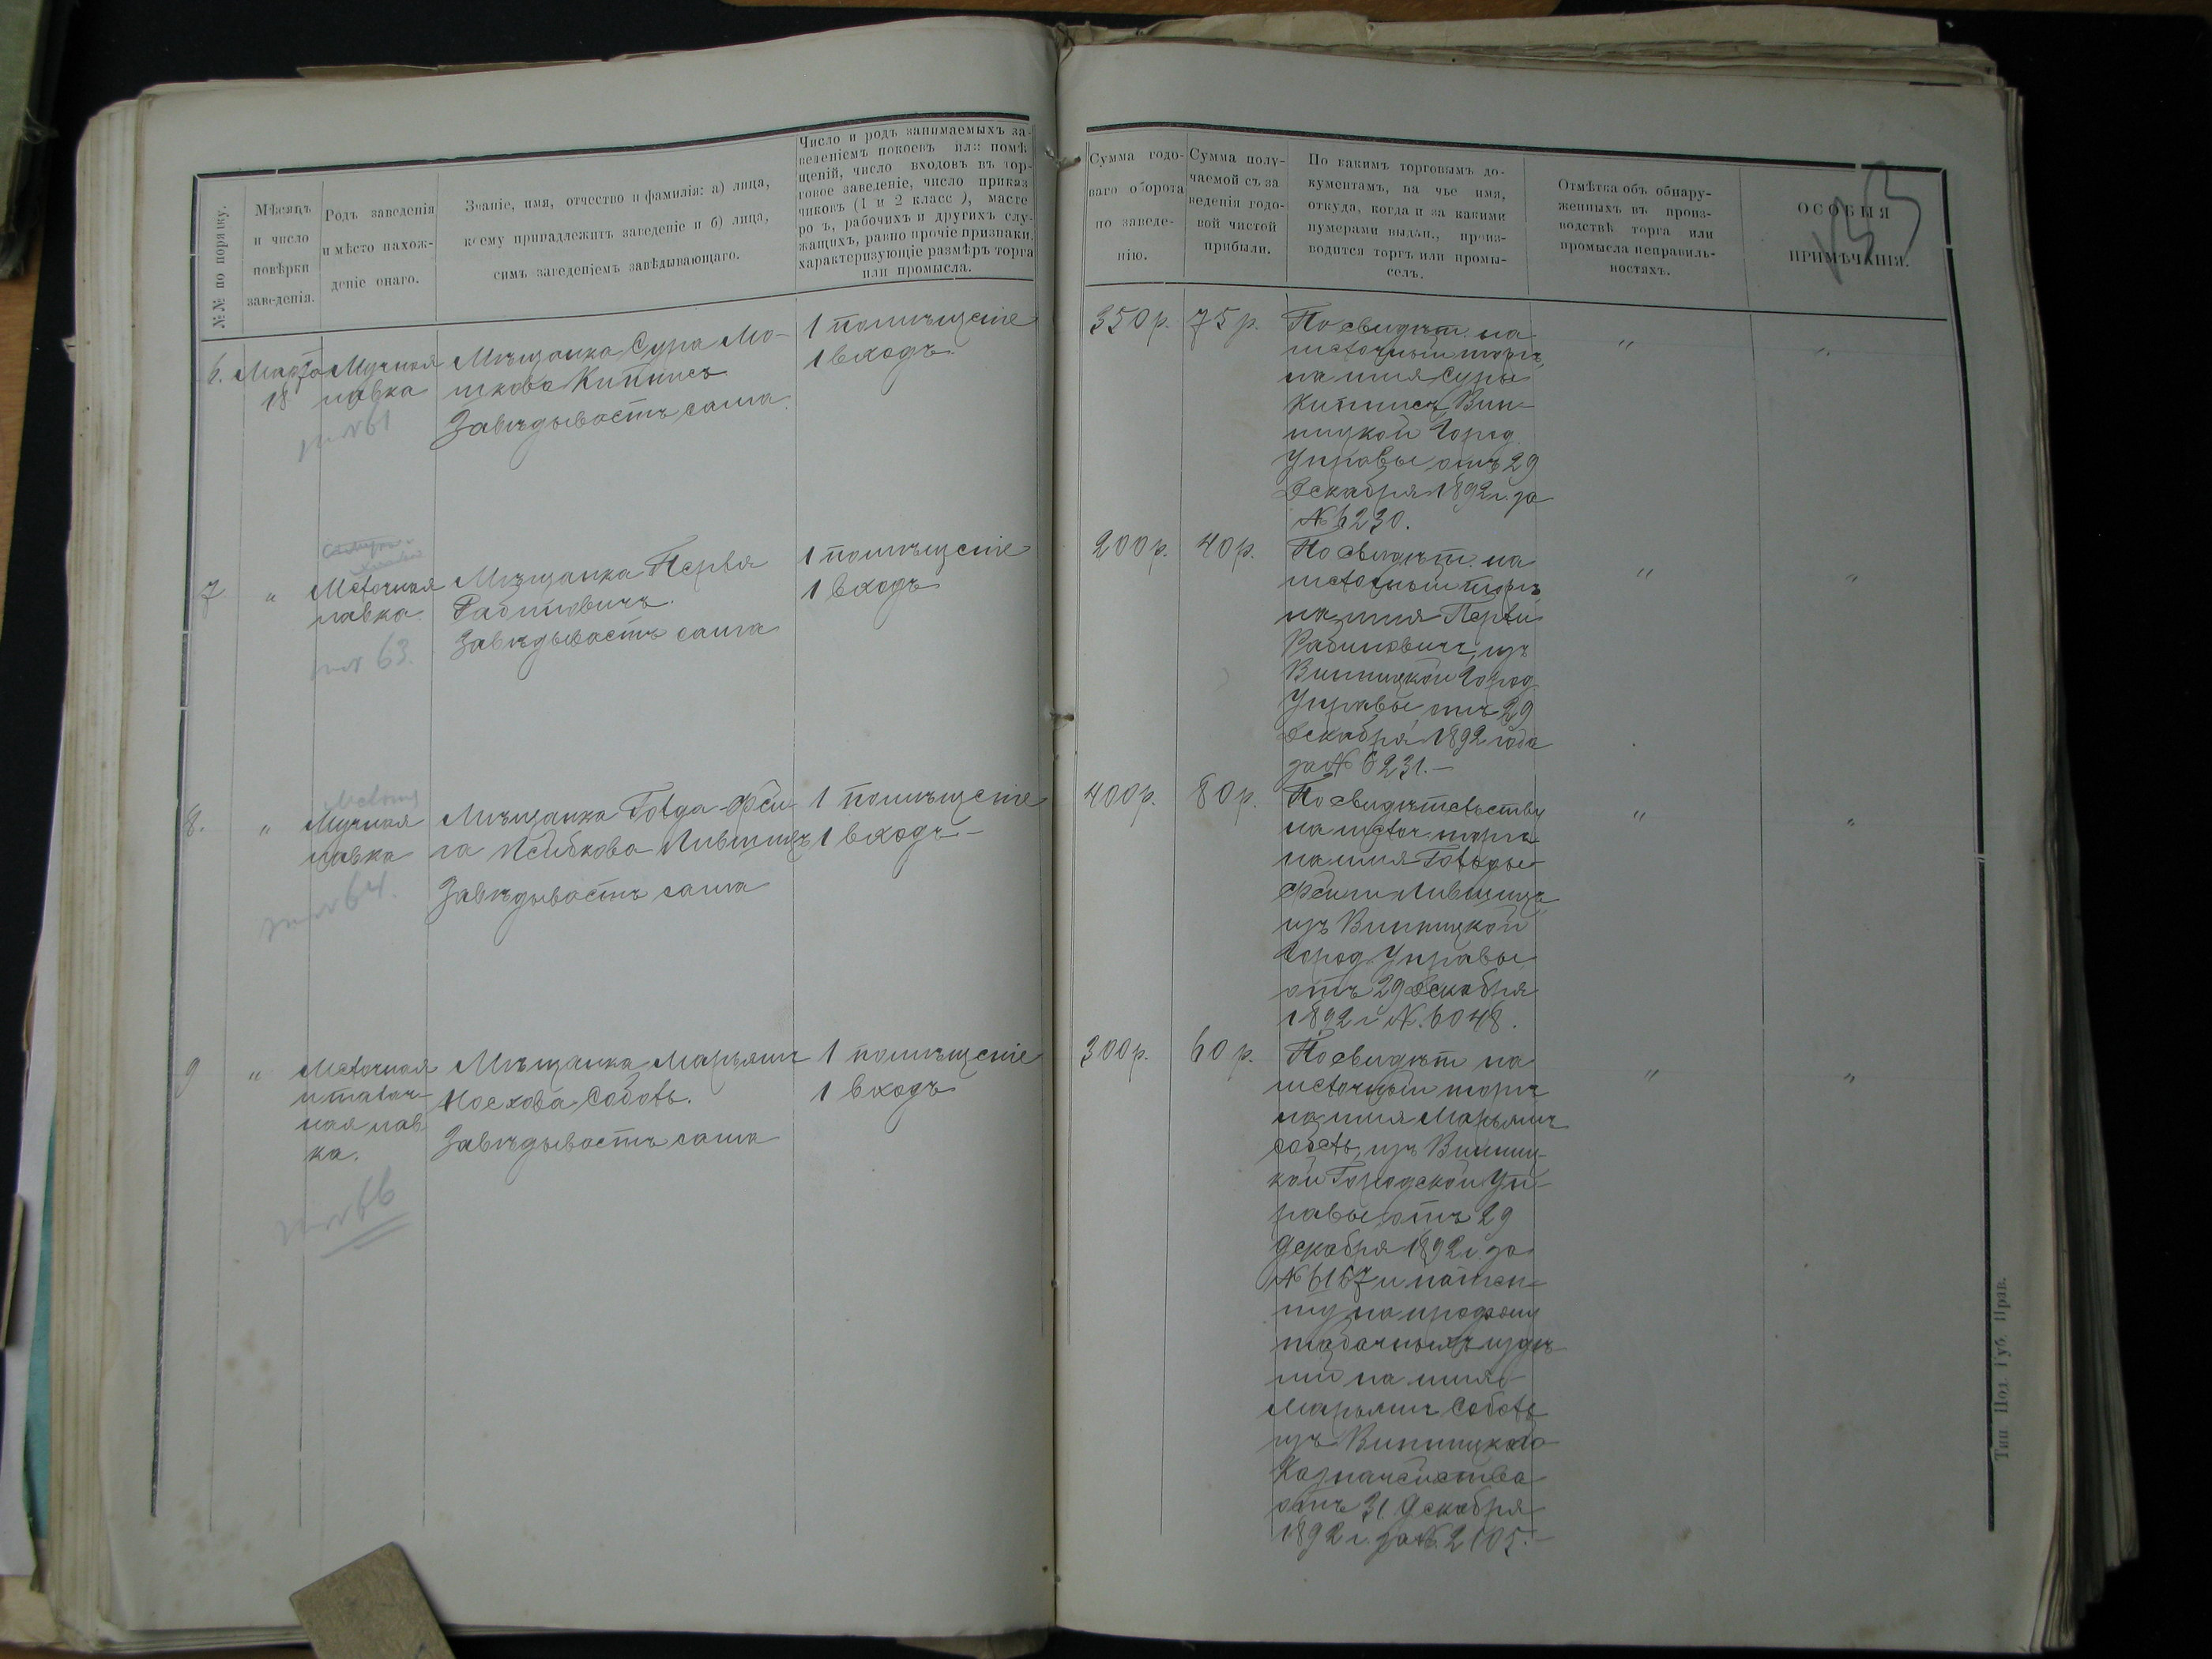 №№ по порядку.
Мѣсяцъ
и число
повѣрки
заведенія.
Родъ заведенія
и мѣсто нахож-
деніе онаго.
Званіе, имя, отчество и фамилія: а) лица,
коему принадлежитъ заведеніе и б) лица,
симъ заведеніемъ завѣдывающаго.
Число и родъ занимаемыхъ за-
веденіемъ покоевъ или помѣ-
щеній, число входовъ въ тор-
говое заведеніе, число приказ
чиковъ (1 и 2 класс ), масте
ро ъ, рабочихъ и другихъ слу-
жащихъ, равно прочіе признаки,
характеризующіе размѣръ торга
или промысла.
Сумма годо-
ваго оборота
по заведе-
нію.
Сумма полу-
чаемой съ за
веденія годо-
вой чистой
прибыли.
По какимъ торговымъ до-
кументамъ, на чье имя,
откуда, когда и за какими
нумерами выдан., произ-
водится торгъ или промы-
селъ.
Отмѣтка объ обнару-
женныхъ въ произ-
водствѣ торга или
промысла неправиль-
ностяхъ.
ОСОБЫЯ
ПРИМѢЧАНІЯ.
6.
Марта
18
Мучная
лавка
61
Мѣщанка Сура Мо-
шкова Кипнисъ
Завѣдываетъ сама
1 помѣщеніе
1 входъ.
350 р.
75 р.
По свидѣт. на
мелочный торгъ
на имя Суры
Кипнисъ, Вин-
ницкой Город.
Управы отъ 29
Декабря 1892 г. за
№ 6230.
"
"
7
"
Мелочная
лавка.
63.
Мѣщанка Перля
Рабиновичъ.
Завѣдываетъ сама
1 помѣщеніе
1 входъ
200 р.
40 р.
По свидѣт. на
мелочный торгъ
на имя Перли
Рабиновичъ, изъ
Винницкой Город
Управы отъ 29
Декабря 1892 года
за № 6231.—
"
"
8.
"
Мелочн
Мучная
лавка
64.
Мѣщанка Голда-Фей-
га Лейбкова Лившицъ
Завѣдываетъ сама
1 помѣщеніе
1 входъ.—
400 р.
80 р.
По свидѣтельству
на мелоч. торгъ
на имя Голды-
Фейги Лившицъ,
изъ Винницкой
Город Управы
отъ 29 Декабря
1892 г № 6048.
"
"
9
"
Мелочная
и табач-
ная лав
ка.
66
Мѣщанка Марьямъ
Іосхова Соболь.
Завѣдываетъ сама
1 помѣщеніе
1 входъ
300 р.
60 р.
По свидѣт на
мелочный торгъ
на имя Марьямъ
Соболь, изъ Винниц-
кой Городской Уп-
равы отъ 29
Декабря 1892 г. за
№ 6157 и патен-
ту на продажу
табачныхъ издѣ-
лій на имя
Марьямъ Соболь
изъ Винницкаго
Казначейства
отъ 31 Декабря
1892 г. за № 2105.—
"
"
Тип Под. Губ. Прав.